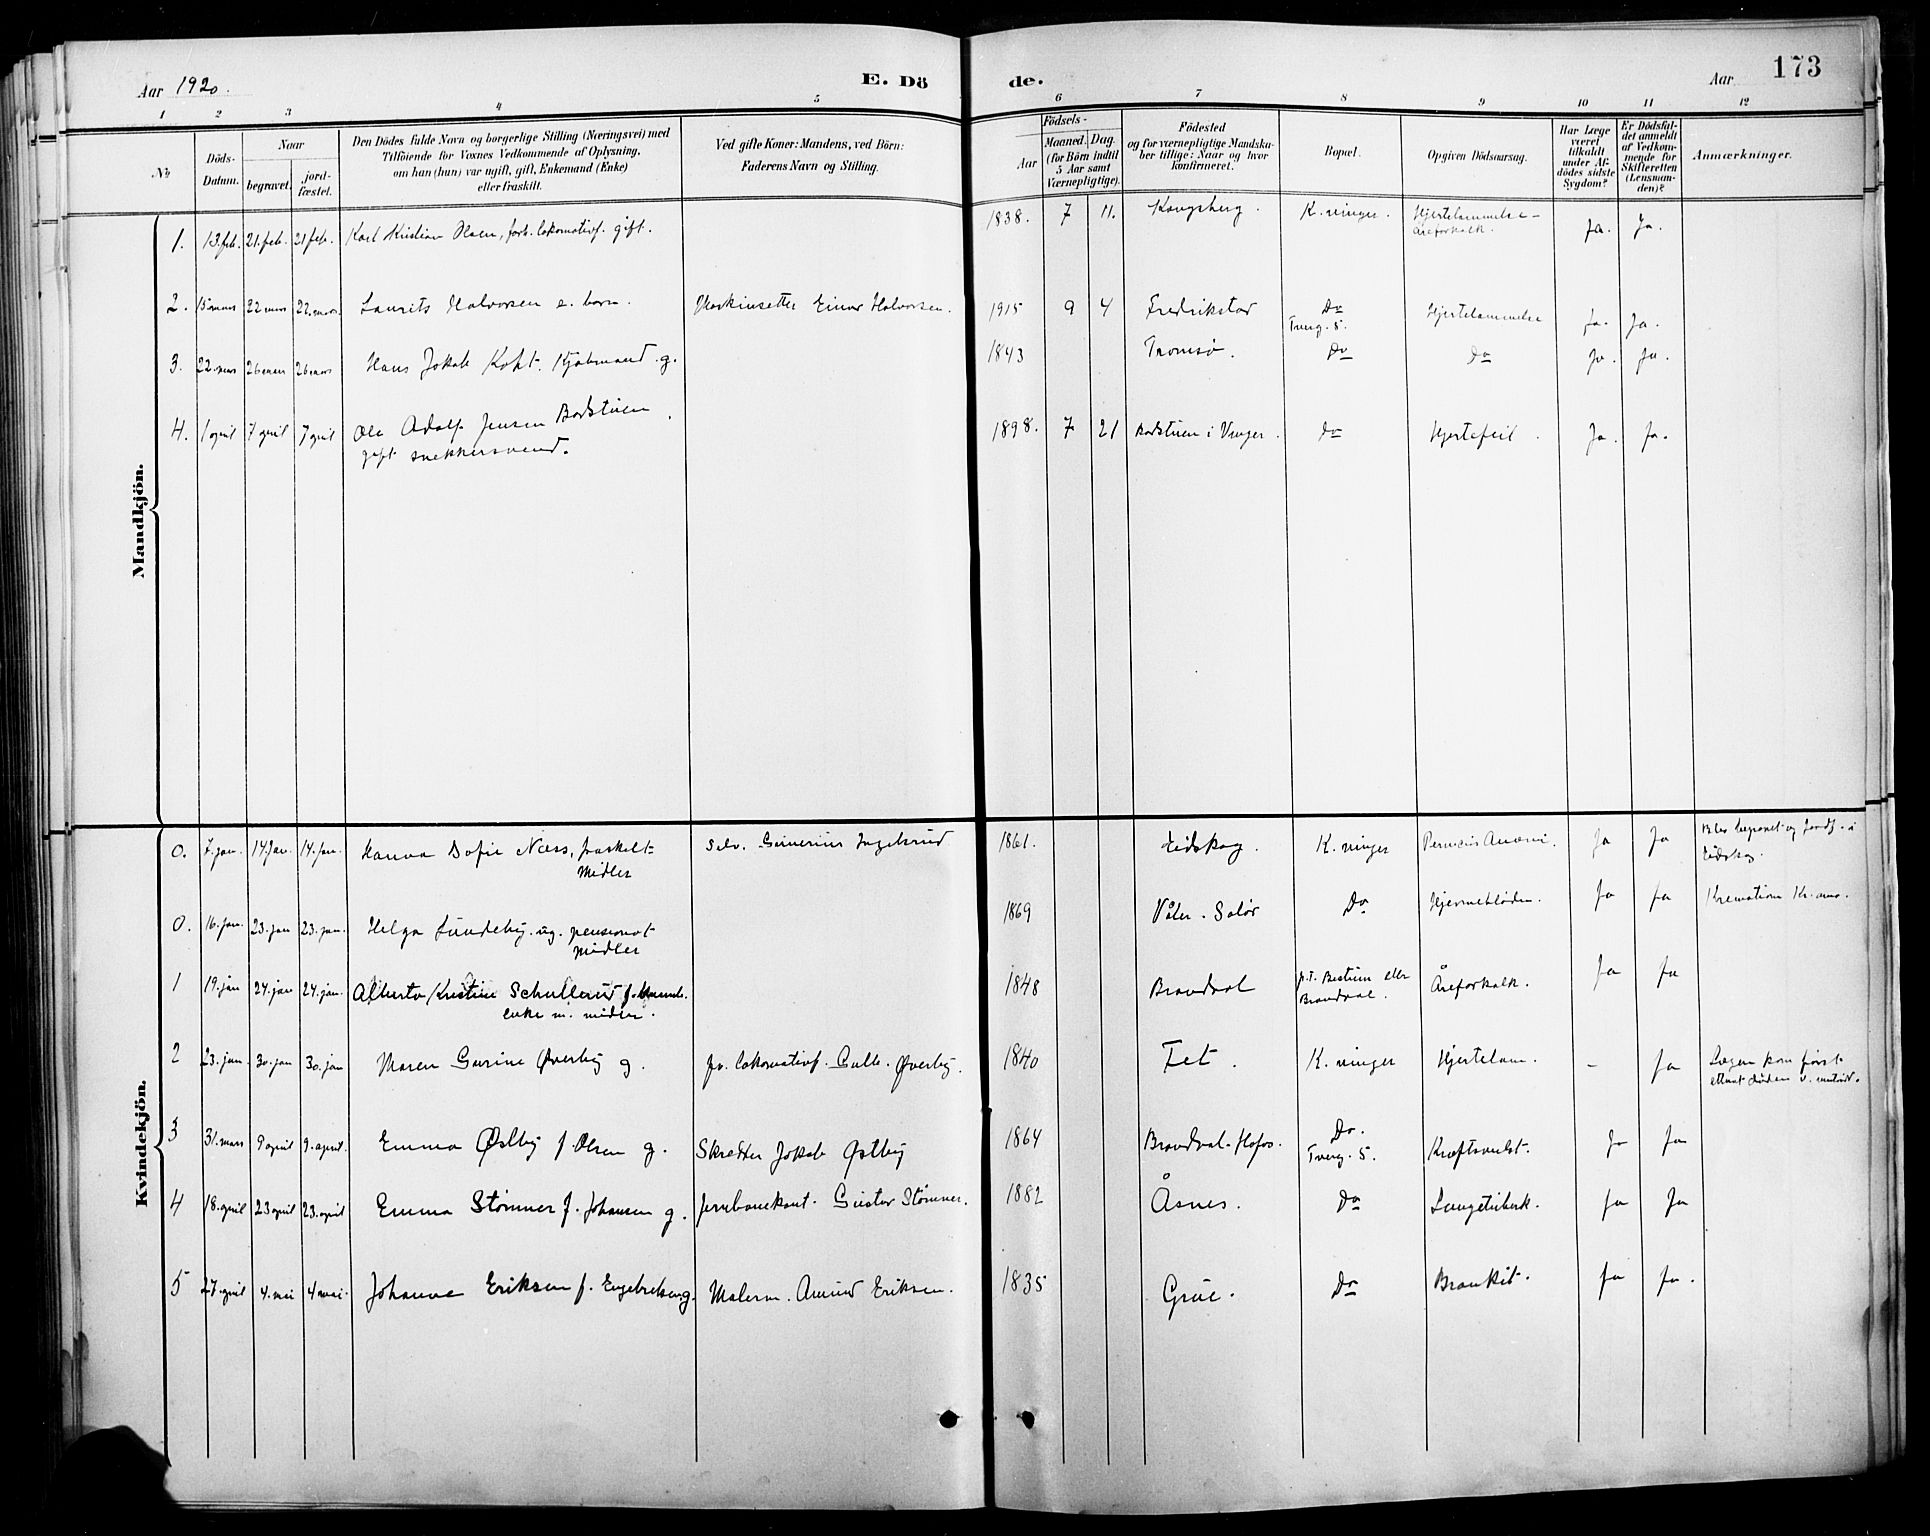 Aar 1920.
E. Dö
de.
Aar
173
1 2 3 4 5 6 7 8 9 10 11 12
No
Döds-
Datum.
Naar
begravet.
jord-
fæstet.
Den Dödes fulde Navn og borgerlige Stilling (Næringsvei) med
Tilföiende for Voxnes Vedkommende af Oplysning,
om han (hun) var ugift, gift, Enkemand (Enke)
eller fraskilt.
Ved gifte Koner: Mandens, ved Börn:
Faderens Navn og Stilling.
Födsels-
Aar
Maaned. Dag.
(for Börn indtil
5 Aar samt
Værnepligtige).
Födested
og for værnepligtige Mandska-
ber tillige: Naar og hvor
konfirmeret.
Bopæl.
Opgiven Dödsaarsag.
Har Læge
været
tilkaldt
under Af-
dödes sidste
Sygdom?
Er Dödsfal-
det anmeldt
af Vedkom-
mende for
Skifteretten
(Lensman-
den)?
Anmærkninger.
Mandkjön.
1. 13. feb. 21. feb. 21 feb. Karl Kristian Olsen, forh. lokomotivf. gift. 1838. 7 11. Kongsberg. K.vinger. Hjertelammelse -
Åreforkalk. Ja. Ja.
2. 15 mars 22 mars 22. mars Laurits Halvorsen e. barn. Maskinsetter Einar Halvorsen. 1915 9 4 Fredrikstad Do
Tverg. 5. Hjertelammelse Ja. Ja.
3. 22. mars 26 mars 26 mars Hans Jakob Koht. Kjøbmand. g. 1843 Tromsø. Do Do Ja. Ja.
4. 1 april 7 april 7 april Ole Adolf Jensen Badstuen
gift snekkersvend. 1898. 7 21 Badstuen i Vinger. Do Hjertefeil. Ja. Ja.
Kvindekjön.
0. 7. jan. 14. Jan. 14. jan. Hanna Sofie Næss, fraskilt
midler Selv. Ingelsrud 1861. Eidskog. K.vinger Pernicius Anæmi. Ja Ja Blev begravet og jordf. i
Eidskog.
0. 16. jan. 23. jan 23. jan. Helga Sundeby. ug. pensionat
midler 1869 Våler. Solør Do Hjerneblødn. Ja Ja Kremation Kr.ania.
1 19. jan 24. jan 24. jan. Alberta Kristine Schullerud f.
enke m. midler. 1848 Brandval p.t. Bestum eller
Brandval. Åreforkalk. Ja Ja
2 23. jan. 30. jan 30. jan Maren Gurine Øverby g. fv. lokomotivf. Gulb. Øverby. 1840 Fet. K.vinger Hjertelam. - Ja Lægen kom først
efterat døden v. inntrådt.
3 31. mars 9 april 9. april. Emma Østby f. Olsen g. Skredder Jakob Østby 1864 Brandval-Hofos. Do.
Tverg. 5. Kræftsvulst. Ja Ja
4 18. april 23 april 23. april Emma Stømner f. Johansen g. Jernbanekont. Gustav Stømner. 1882 Åsnes. Do Lungetuberk. Ja Ja
5 27. april 4. mai 4 mai. Johanne Eriksen f. Engebretsen g. Malerm. Amund Eriksen. 1835 Grue. Do Bronkit. Ja Ja.